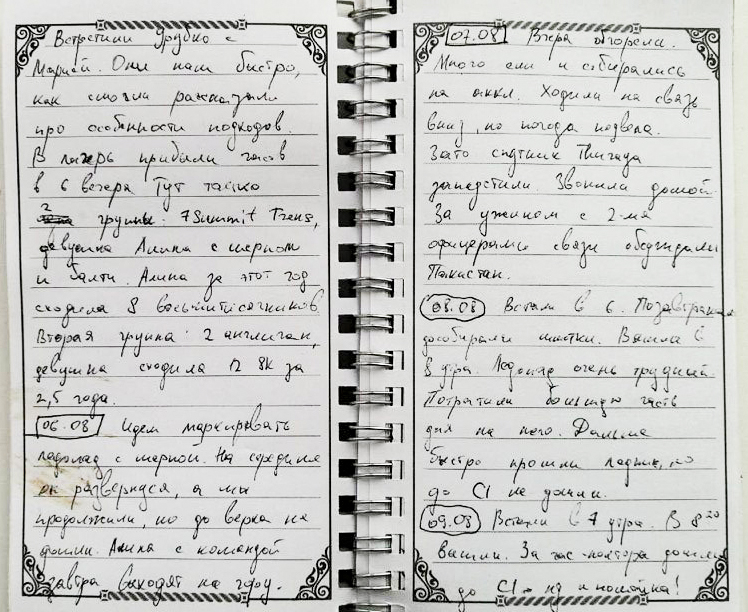 Встретили Урубко с
Марией. Они нам быстро,
как смогли рассказали
про особенности подходов.
В лагерь прибыли часов
в 6 вечера Тут только
2 группы: 7Summit Treks,
девушка Алина с шерпом
и балти. Алина за этот год
сходила 8 восьмитысячников
Вторая группа: 2 англичан,
девушка сходила 12 8К за
2,5 года.
06.08 Идем маркировать
ледопад с шерпой. На середине
он развернулся, а мы
продолжили, но до верха не
дошли. Алина с командой
завтра выходят на гору.
07.08 Вчера обгорели.
Много ели и собирались
на аккл. Ходили на связь
вниз, но погода подвела.
Зато спутник
Звонили домой
За ужином с 2-мя
офицерами связи обсуждали
Пакистан.
08.08 Встали в 6. Позавтракали
дособирали шмотки. Вышли в
8 утра. Ледопад очень трудный
Потратили большую часть
дня на него. Дальше
быстро прошли ледник, но
до С1 не дошли.
09.08 Встали в 7 утра. В 8 20
вышли. За час-полтора дошли
до С1 - ну и помойка!